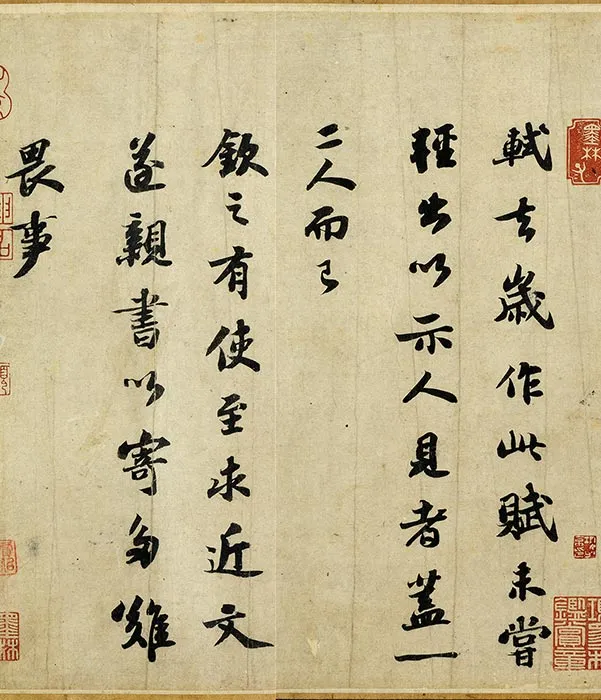 軾去歲作此賦未嘗
輕出以示人見者蓋一
二人而已
欽之有使至求近文
遂親書以寄多難
畏事
墨林